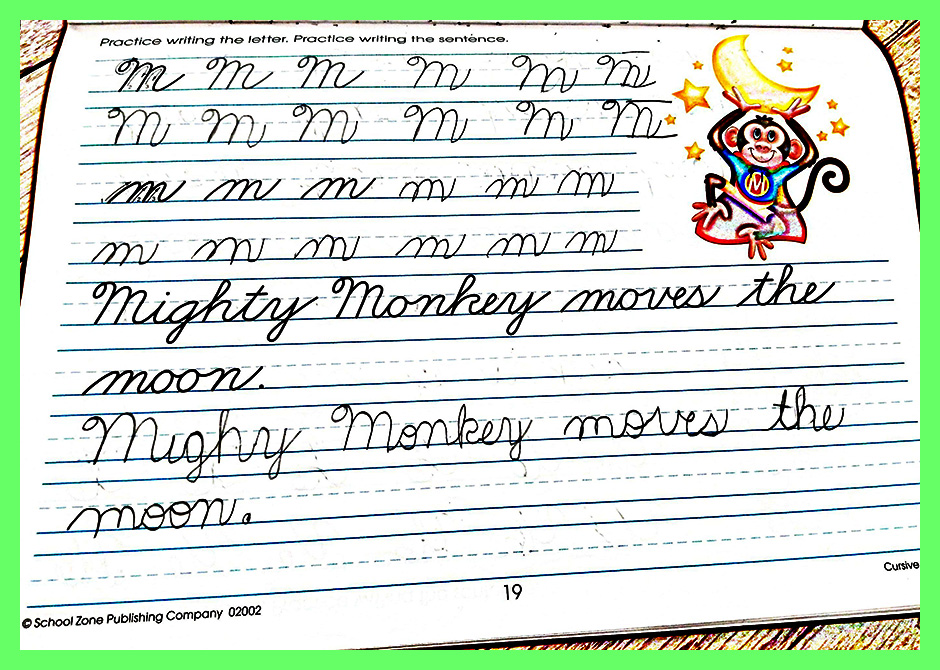 Practice writing the letter. Practice writing the sentence.
M M M M M M
M M M M M M
m m m m m m
m m m m m m
M
Mighty Monkey moves the
moon.
Mighy Monkey moves the
moon.
© School Zone Publishing Company 02002
19
Cursive